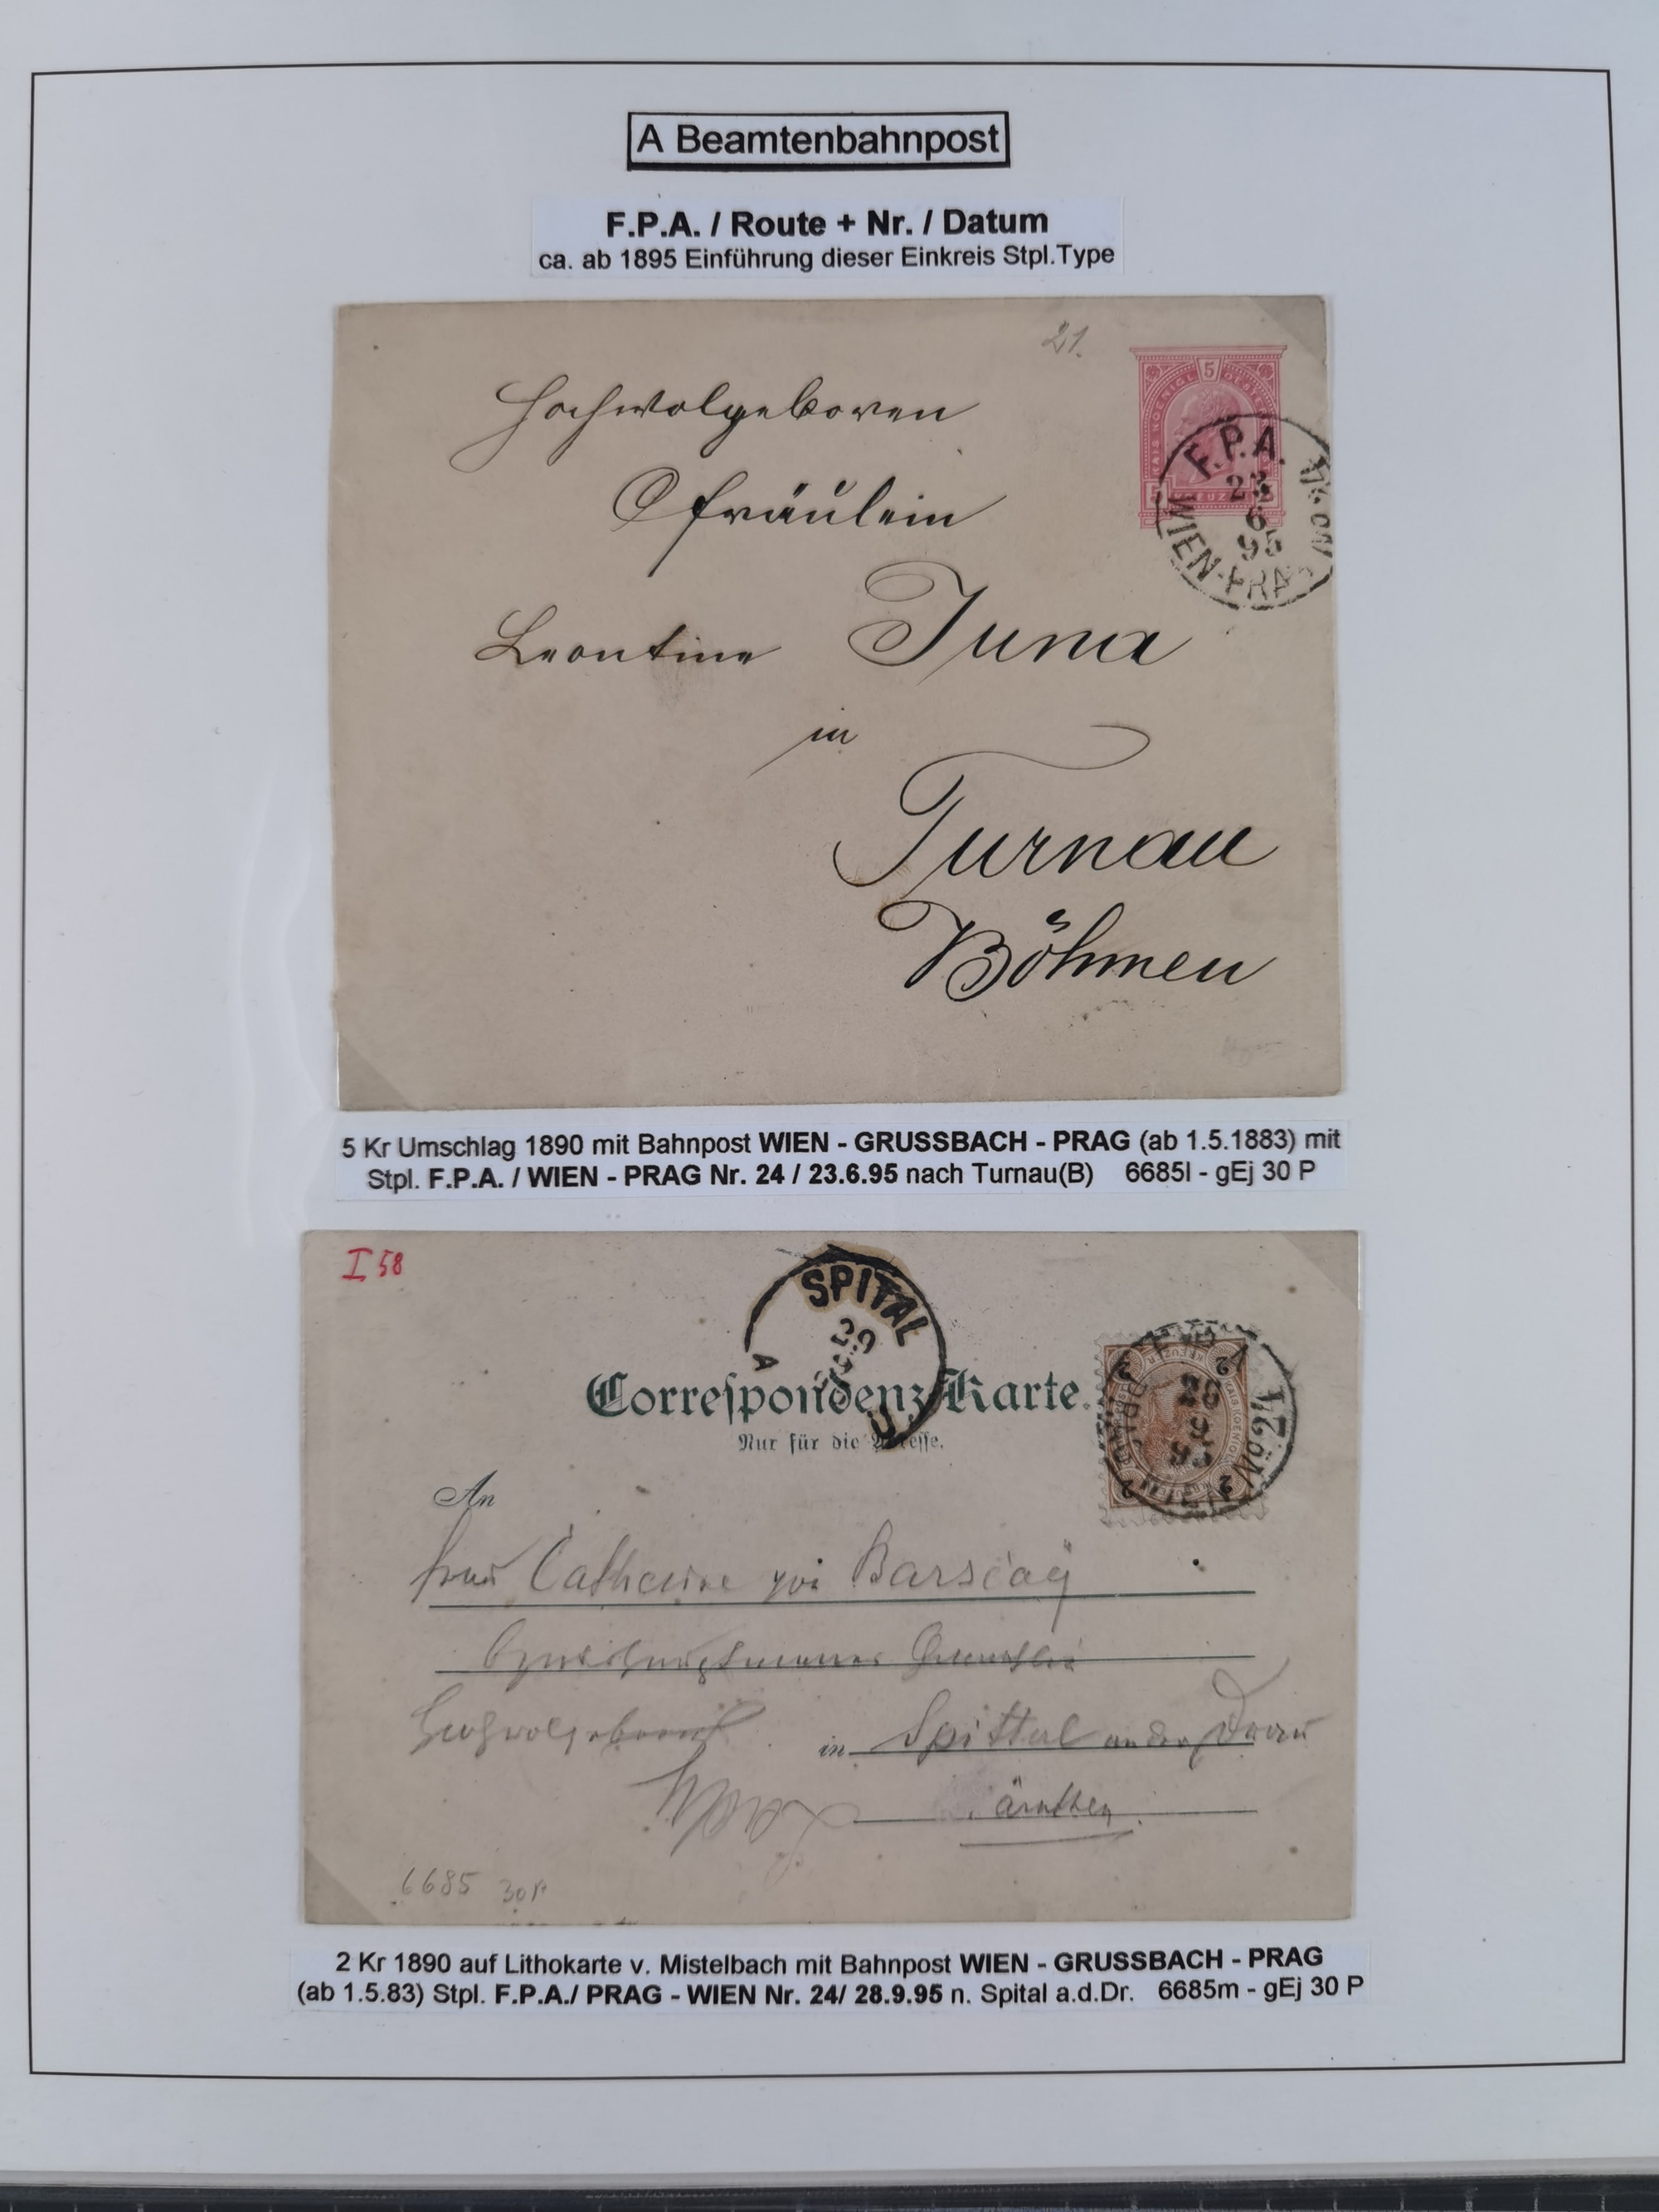 A Beamtenbahnpost
F.P.A. / Route + Nr. / Datum
ca. ab 1895 Einführung dieser Einkreis Stpl.Type
21.
5
KREUZER
F.P.A.
23
6
95
WIEN-PRAG
Hochwolgeboren
Fräulein
Leontine Tuma
in
Turnau
Böhmen
5 Kr Umschlag 1890 mit Bahnpost WIEN - GRUSSBACH - PRAG (ab 1.5.1883) mit
Stpl. F.P.A. / WIEN - PRAG Nr. 24 / 23.6.95 nach Turnau(B) 6685l - gEj 30 P
I 58
SPITAL
Correspondenz-Karte.
Nur für die Adresse.
An
Frau Catherine von
Hochwolgeboren in Spittal an der Drau
Kärnthen
6685 30 P
2 Kr 1890 auf Lithokarte v. Mistelbach mit Bahnpost WIEN - GRUSSBACH - PRAG
(ab 1.5.83) Stpl. F.P.A./ PRAG - WIEN Nr. 24/ 28.9.95 n. Spital a.d.Dr. 6685m - gEj 30 P